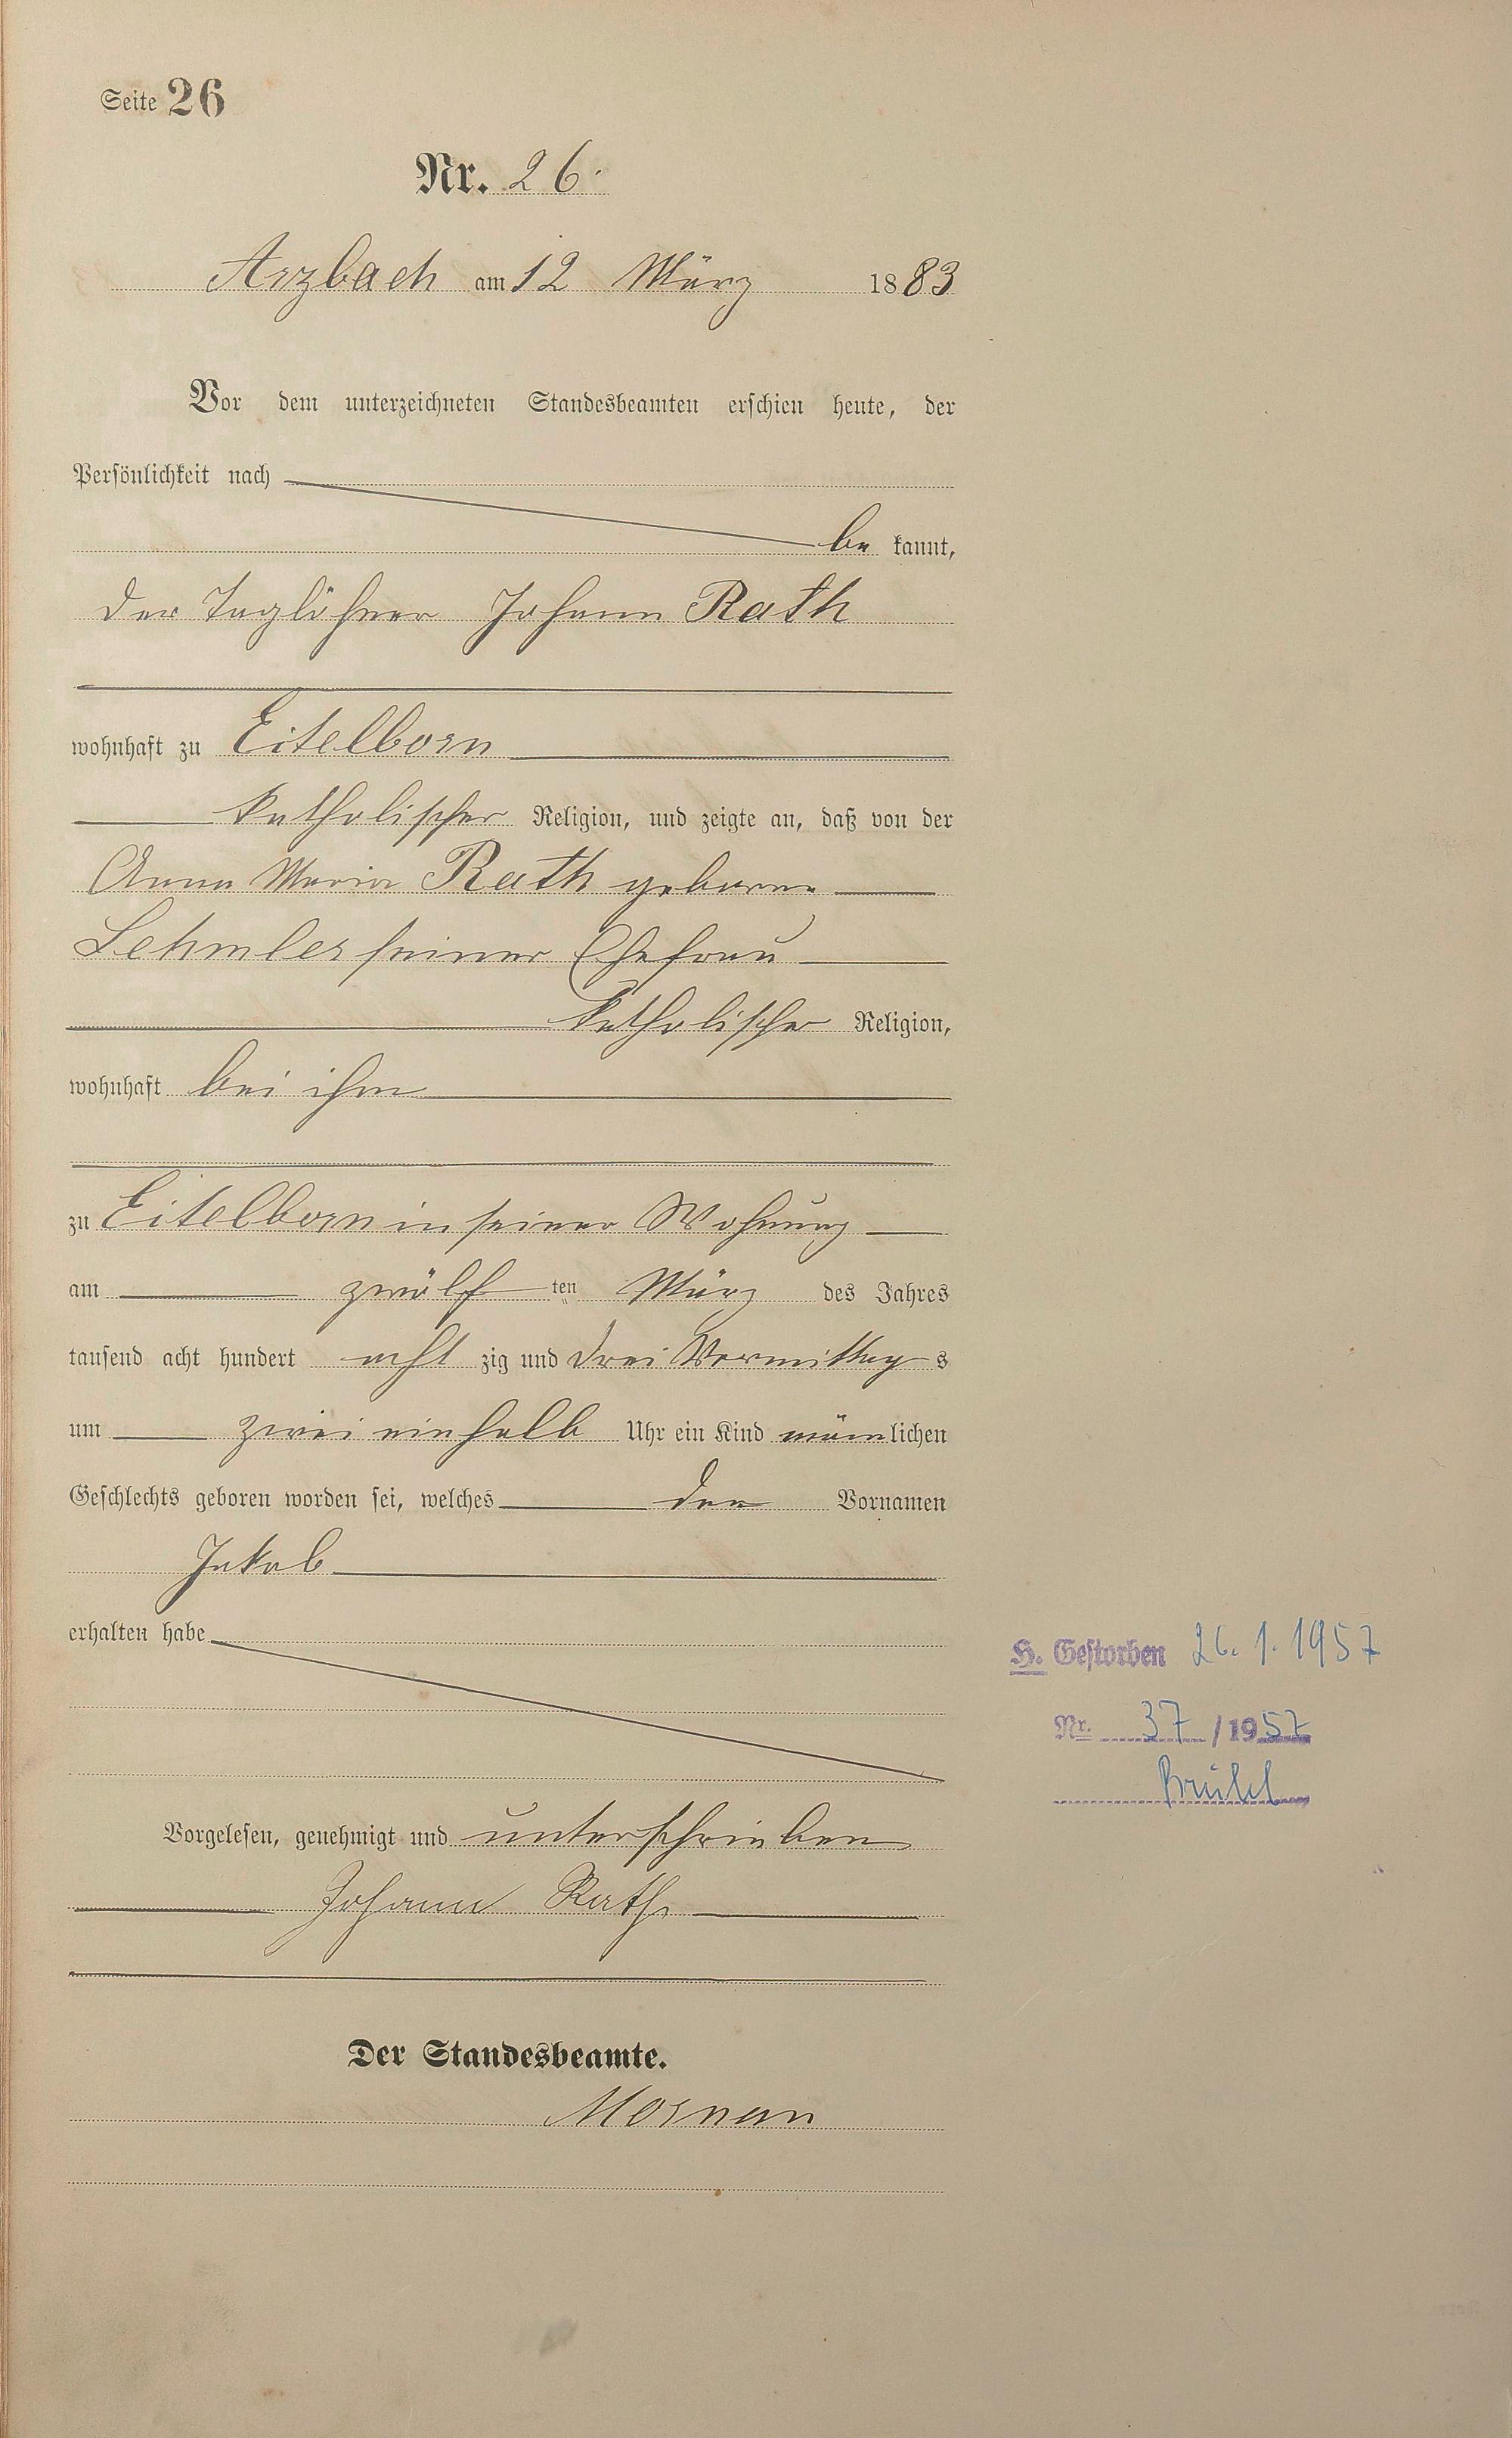 Seite 26
Nr. 26.
Arzbach am 12 März 1883
Vor dem unterzeichneten Standesbeamten erschien heute, der
Persönlichkeit nach
be kannt,
der Taglöhner Johann Rath
wohnhaft zu Eitelborn
katholischer Religion, und zeigte an, daß von der
Anna Maria Rath geborne
Lehmler seiner Ehefrau
katholischer Religion,
wohnhaft bei ihm
zu Eitelborn in seiner Wohnung
am zwölf ten März des Jahres
tausend acht hundert acht zig und drei Vormittag s
um zwei einhalb Uhr ein Kind männlichen
Geschlechts geboren worden sei, welches den Vornamen
Jakob
erhalten habe
H. Gestorben 26. 1. 1957
Nr. 37 / 1957
Brühl
Vorgelesen, genehmigt und unterschrieben
Johann Rath
Der Standesbeamte.